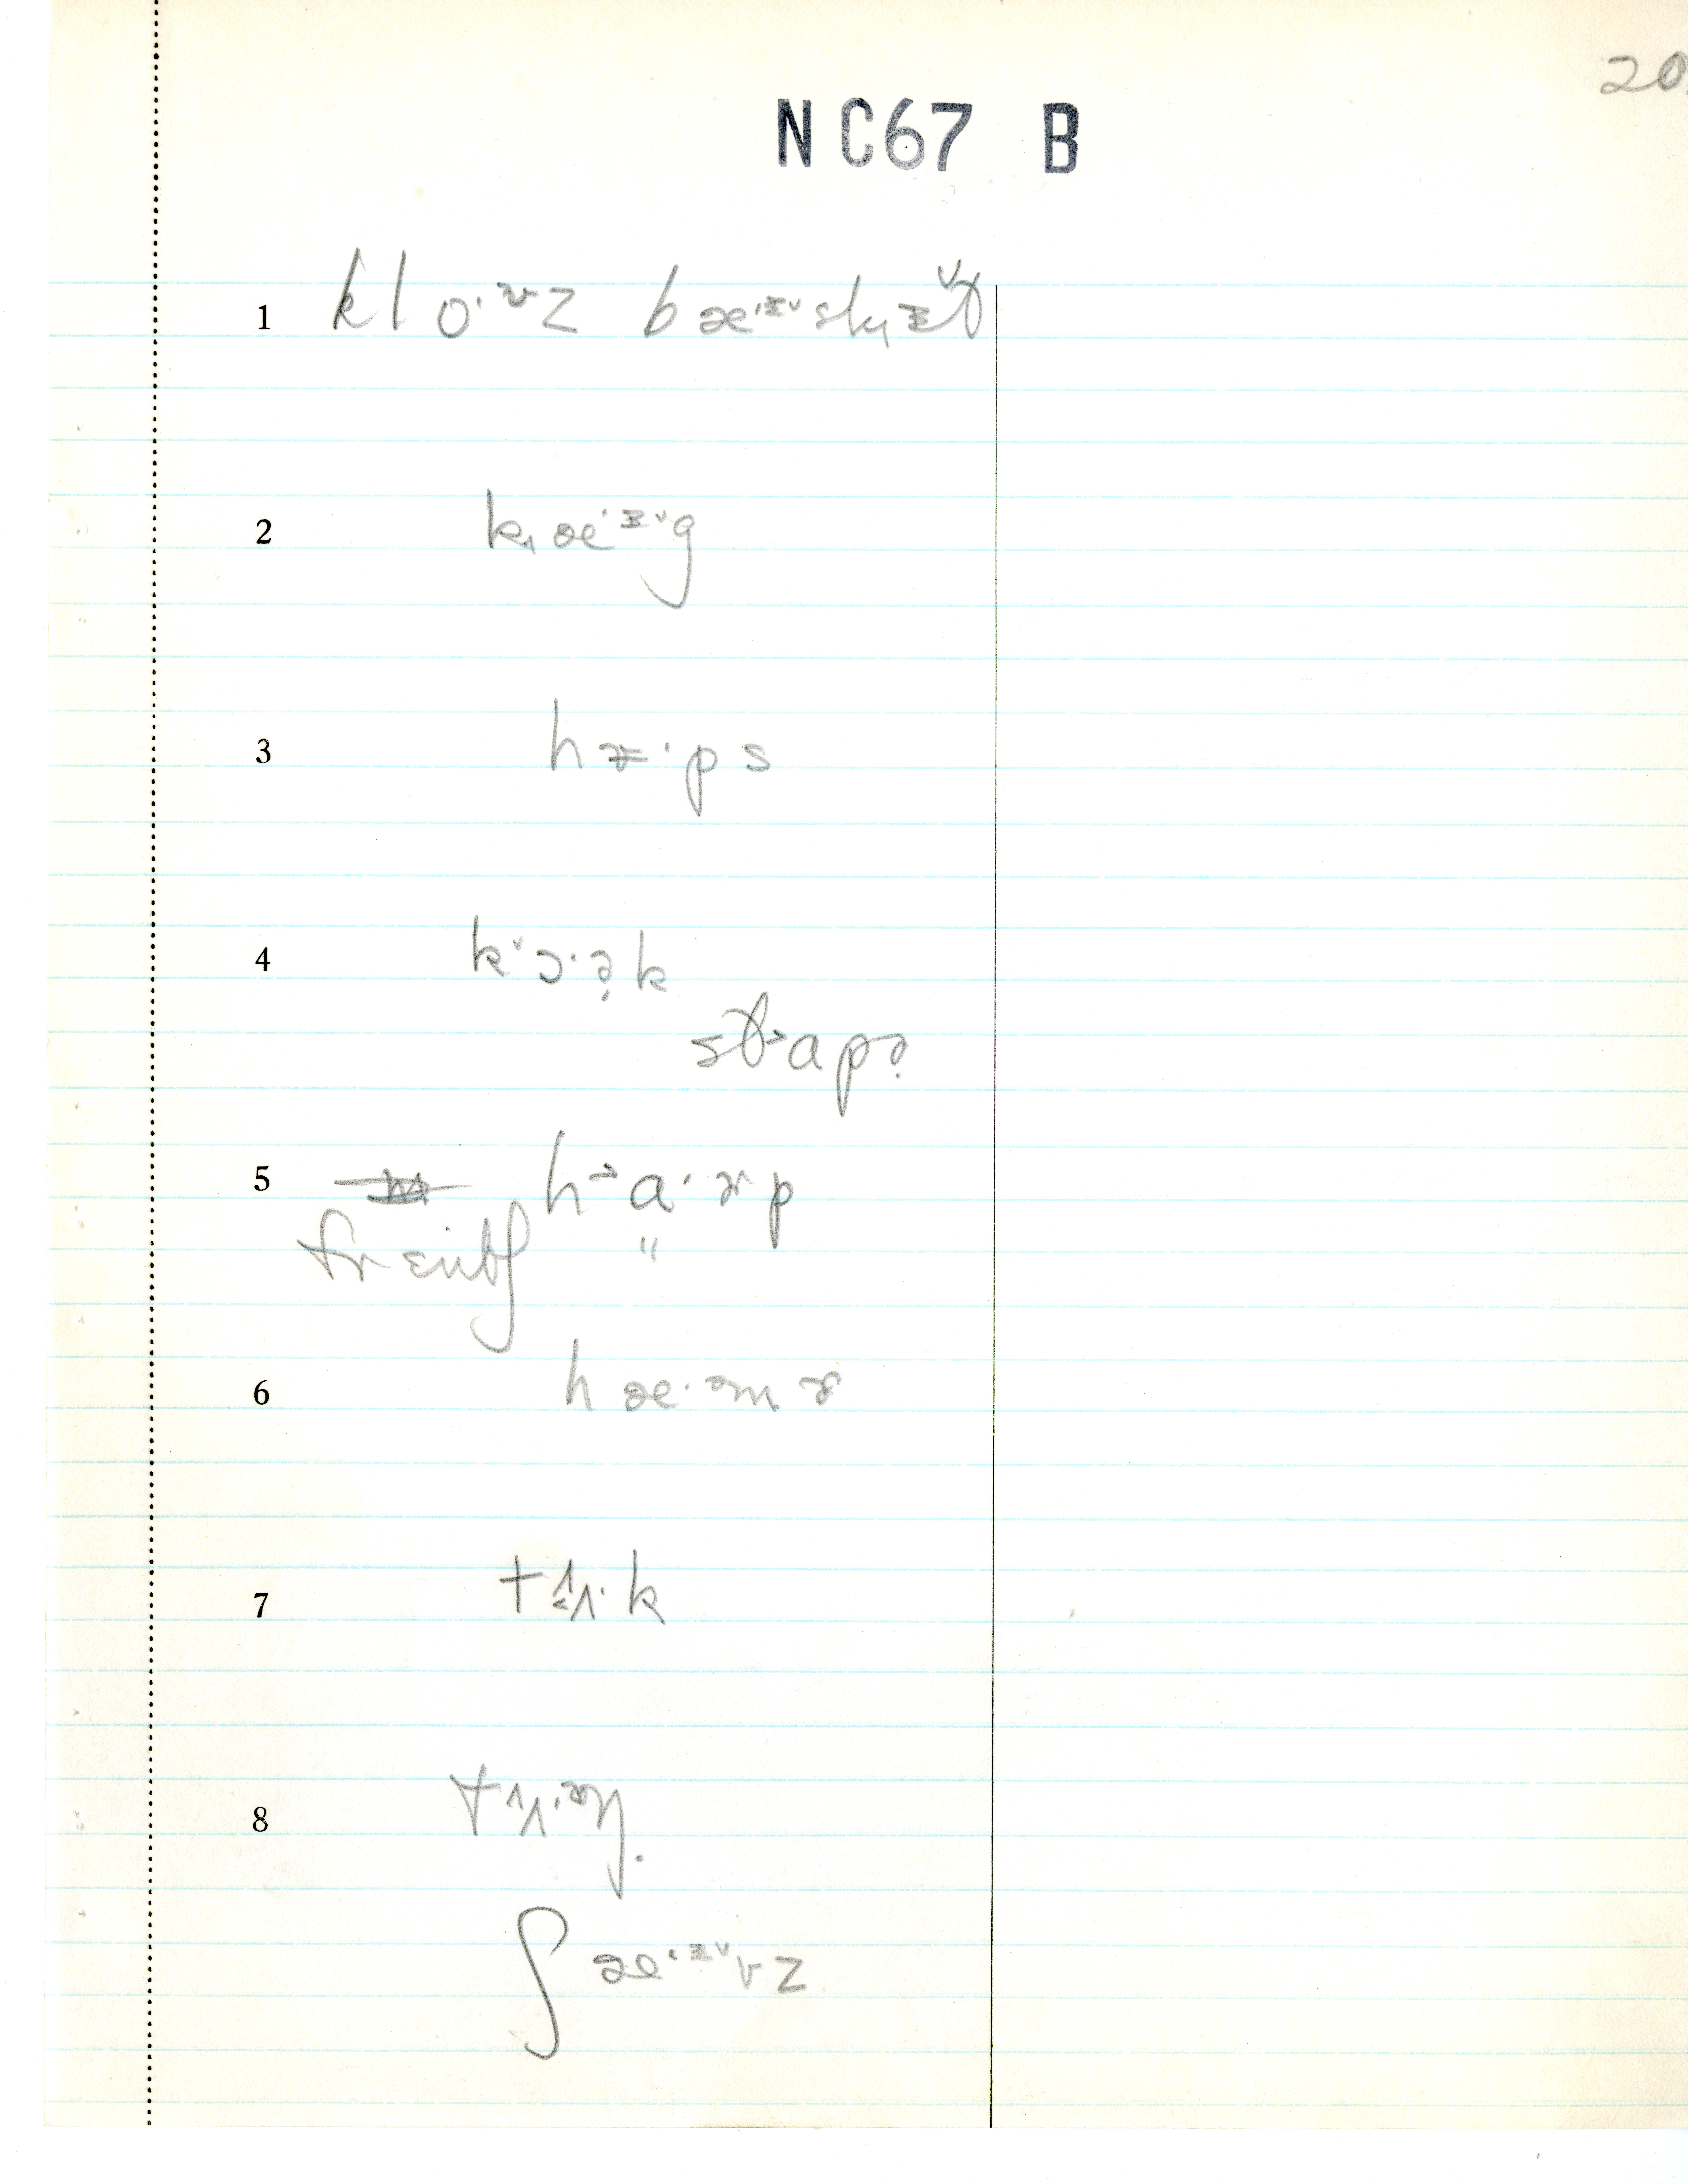 20
NC67 B
1 klo·ʊz bæ·ɪ̵ˇsk̟ɪ̵ˇt
2 k̟æ·ɪ̵ˇg
3 h·ps
4 kˇɔ·ə̣k
stap
5 h a·ɚp
frɛntʃ "
6 hæ·əmɚ
7 tʌ·k
8 tʌ·əŋ.
ʃæ·ɪ̵ˇvz